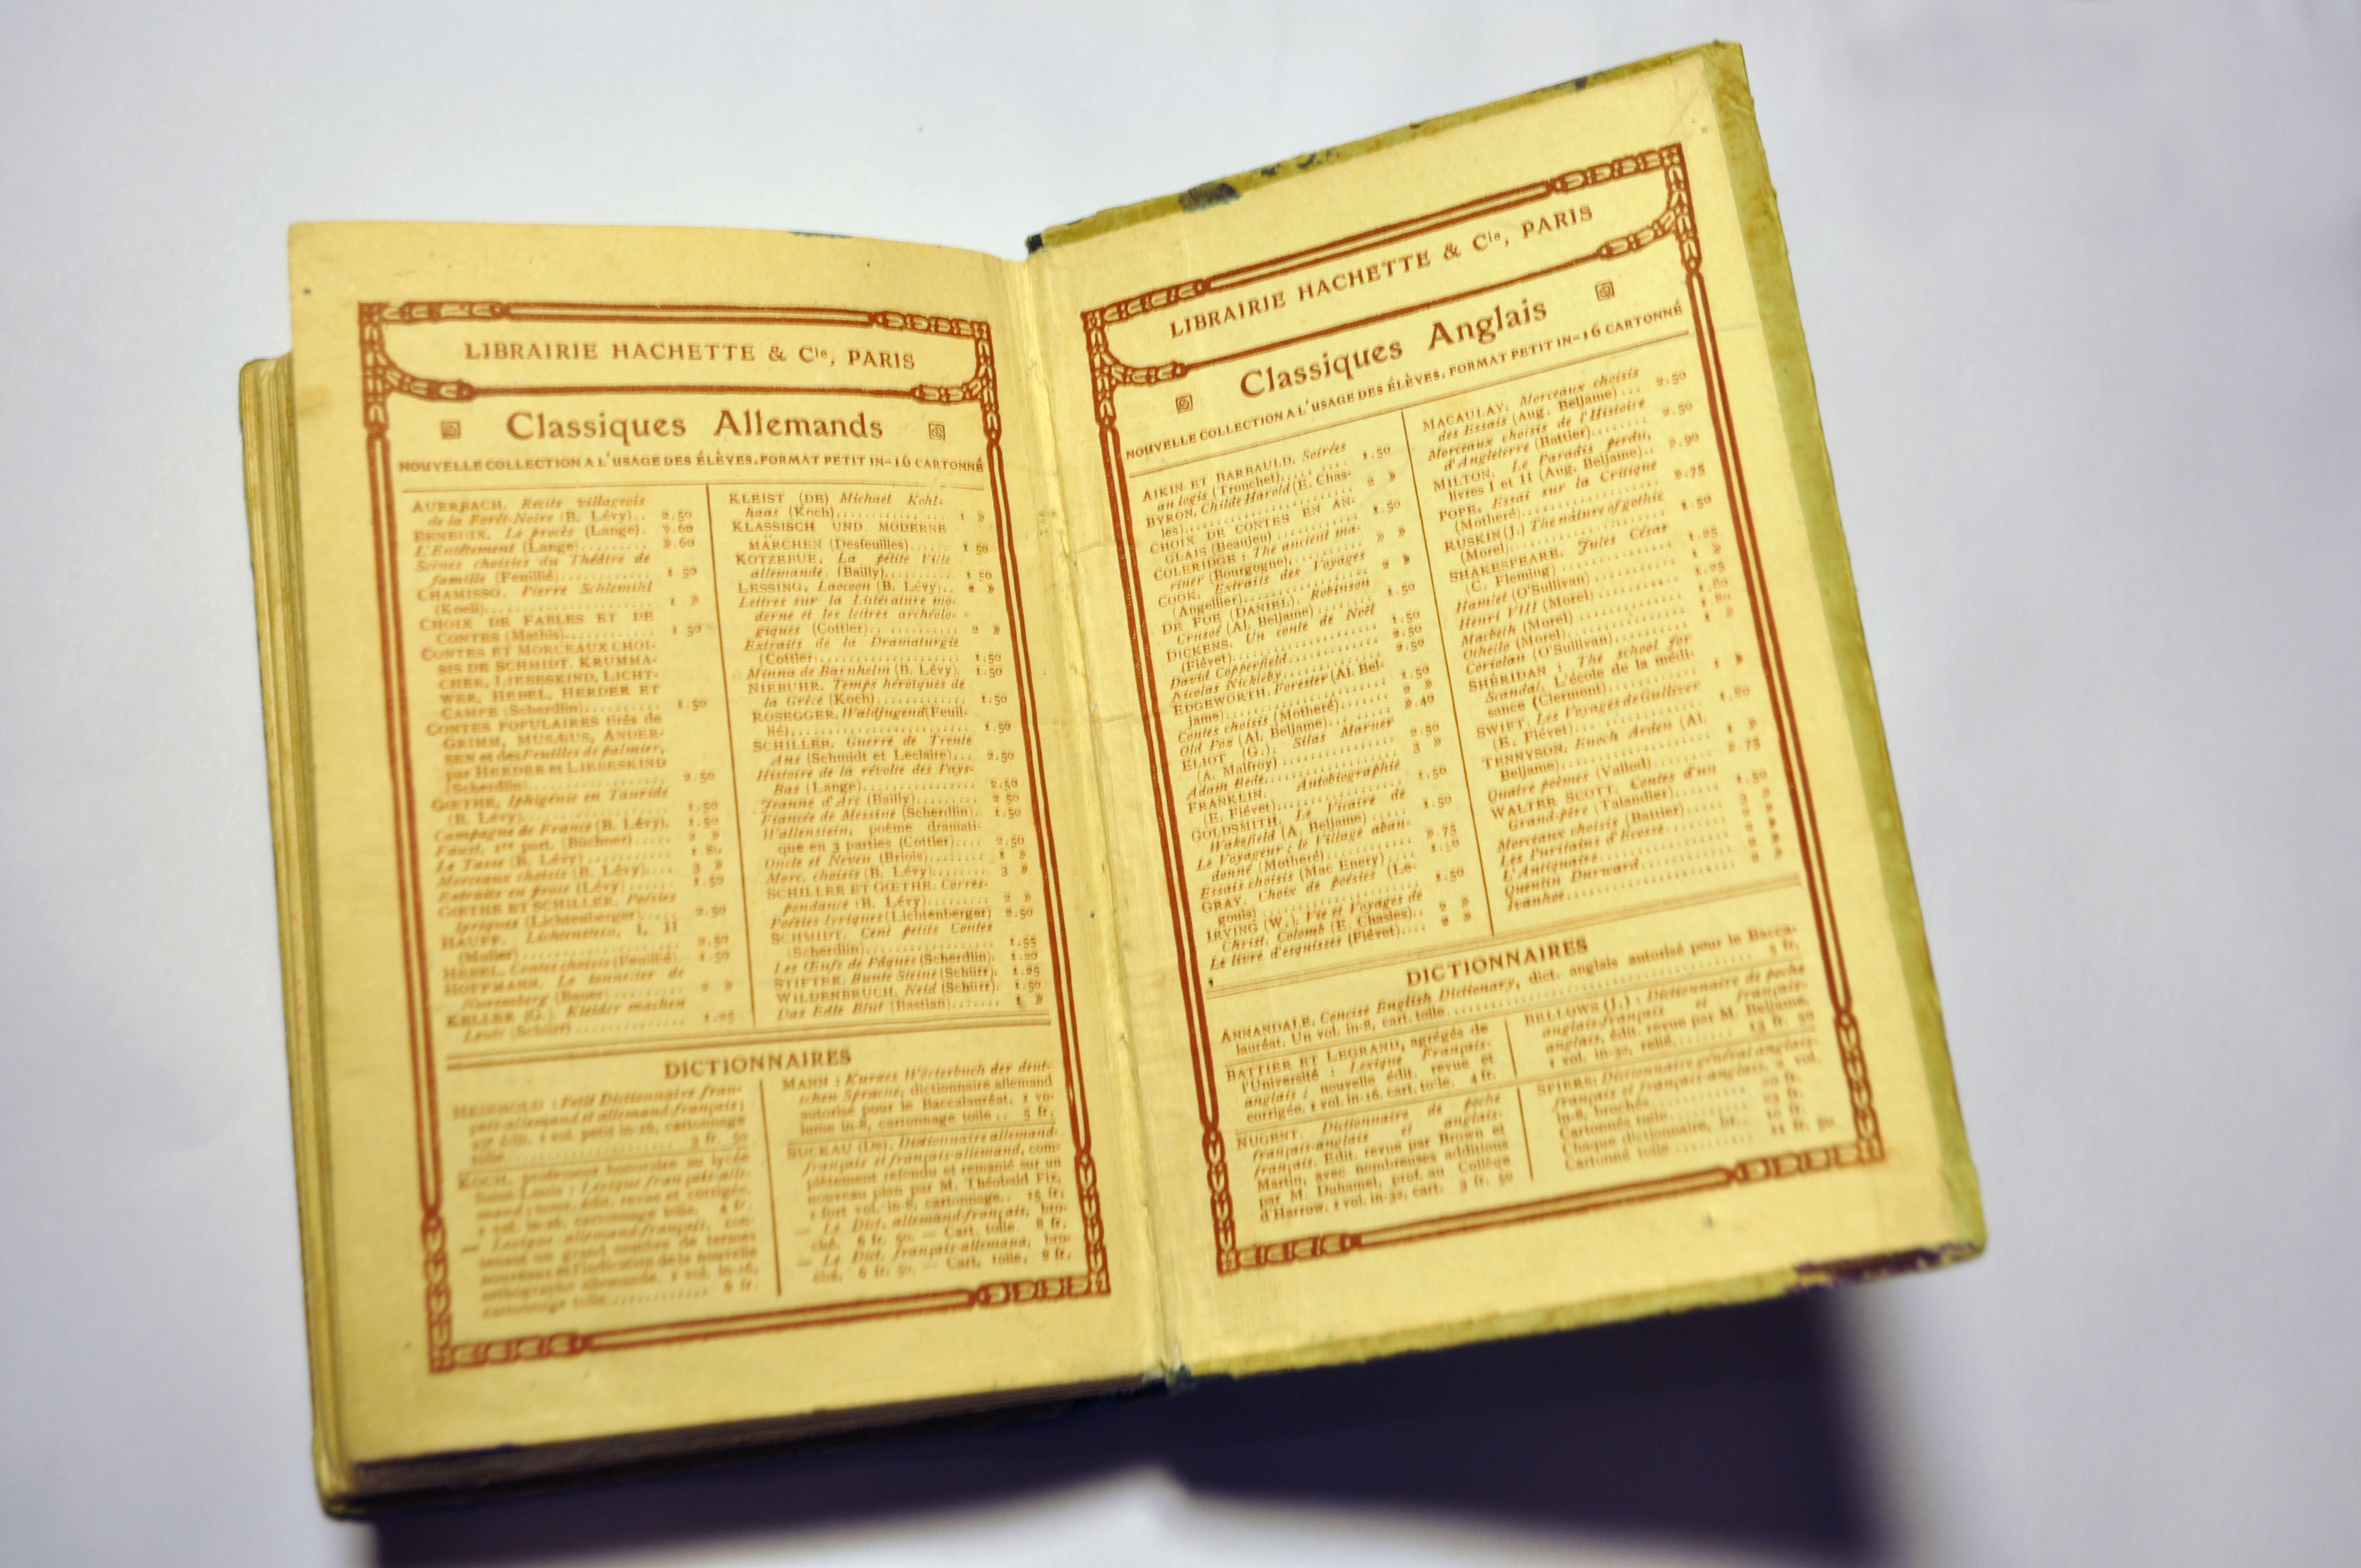 LIBRAIRIE HACHETTE & Cie, PARIS
Classiques Allemands
NOUVELLE COLLECTION A L'USAGE DES ÉLÈVES. FORMAT PETIT IN-16 CARTONNÉ
AUERBACH. Récits villageois
de la Forêt-Noire (B. Lévy).. 2.50
BENEDIX. Le procès (Lange). ».60
L'Entêtement (Lange)......... ».60
Scènes choisies du Théâtre de
famille (Feuillié)............ 1.50
CHAMISSO. Pierre Schlemihl
(Koell)..................... 1 »
CHOIX DE FABLES ET DE
CONTES (Mathis)............ 1 50
CONTES ET MORCEAUX CHOI-
SIS DE SCHMIDT, KRUMMA-
CHER, LIEBESKIND, LICHT-
WER, HEBEL, HERDER ET
CAMPE (Scherdlin)........... 1.50
CONTES POPULAIRES tirés de
GRIMM, MUSÆUS, ANDER-
SEN et des Feuilles de palmier,
par HERDER et LIEBESKIND
(Scherdlin).................. 2.50
GŒTHE, Iphigénie en Tauride
(B. Lévy)................... 1.50
Campagne de France (B. Lévy). 1.50
Faust, 1re part. (Büchner)...... 2 »
Le Tasse (B. Lévy)........... 1.80
Morceaux choisis (B. Lévy).... 3 »
Extraits en prose (Lévy)...... 1.50
GŒTHE ET SCHILLER. Poésies
lyriques (Lichtenberger)..... 2.50
HAUFF. Lichtenstein, I, II
(Muller).................... 2.50
HEBEL. Contes choisis (Feuillié). 1.50
HOFFMANN. Le tonnelier de
Nuremberg (Bauer).......... 2 »
KELLER (G.). Kleider machen
Leute (Schürr).............. 1.25
KLEIST (DE) Michael Kohl-
haas (Koch)................ 1 »
KLASSISCH UND MODERNE
MÄRCHEN (Desfeuilles)...... 1 50
KOTZEBUE, La petite Ville
allemande. (Bailly).......... 1 50
LESSING, Laocoon (B. Lévy).. 2 »
Lettres sur la Littérature mo-
derne et les lettres archéolo-
giques (Cottler)............. 2 »
Extraits de la Dramaturgie
(Cottler).................... 1.50
Minna de Barnhelm (B. Lévy). 1.50
NIEBUHR. Temps héroïques de
la Grèce (Koch)............. 1.50
ROSEGGER. Waldjugend (Feuil-
lié)......................... 1.50
SCHILLER. Guerre de Trente
Ans (Schmidt et Leclaire)... 2.50
Histoire de la révolte des Pays-
Bas (Lange)................ 2.50
Jeanne d'Arc (Bailly)......... 2 50
Fiancée de Messine (Scherdlin). 1.50
Wallenstein, poème dramati-
que en 3 parties (Cottler).... 2.50
Oncle et Neveu (Briois)....... 1 »
Morc. choisis (B. Lévy)....... 3 »
SCHILLER ET GŒTHE. Corres-
pondance (B. Lévy)......... 2 »
Poésies lyriques (Lichtenberger) 2.50
SCHMIDT. Cent petits Contes
(Scherdlin).................. 1.55
Les Œufs de Pâques (Scherdlin). 1.20
STIFTER. Bunte Steine (Schürr). 1.25
WILDENBRUCH. Neid (Schürr). 1.50
Das Edle Blut (Bastian)....... 1 »
DICTIONNAIRES
HEINHOLD : Petit Dictionnaire fran-
çais-allemand et allemand-français;
édit. 1 vol. petit in-16, cartonnage
toile............................ 3 fr. 50
KOCH, professeur honoraire au lycée
Saint-Louis : Lexique français-alle-
mand; nouv. édit. revue et corrigée.
1 vol. in-16, cartonnage toile. 4 fr.
— Lexique allemand-français, con-
tenant un grand nombre de termes
nouveaux et l'indication de la nouvelle
orthographe allemande. 1 vol. in-16,
cartonnage toile............. 6 fr.
MANN : Kurzes Wörterbuch der deut-
schen Sprache, dictionnaire allemand
autorisé pour le Baccalauréat. 1 vo-
lume in-8, cartonnage toile.. 5 fr.
SUCKAU (De). Dictionnaire allemand-
français et français-allemand, com-
plètement refondu et remanié sur un
nouveau plan par M. Théobald Fix,
1 fort vol. in-8, cartonnage.. 15 fr.
— Le Dict. allemand-français, bro-
ché. 6 fr. 50. — Cart. toile 8 fr.
— Le Dict. français-allemand, bro-
ché. 6 fr. 50. — Cart. toile, 8 fr.
LIBRAIRIE HACHETTE & Cie, PARIS
Classiques Anglais
NOUVELLE COLLECTION A L'USAGE DES ÉLÈVES. FORMAT PETIT IN-16 CARTONNÉ
AIKIN ET BARBAULD. Soirées
au logis (Tronchet).......... 1.50
BYRON. Childe Harold (E. Chas-
les)......................... 2 »
CHOIX DE CONTES EN AN-
GLAIS (Beaujeu)............ 1.50
COLERIDGE : The ancient ma-
riner (Bourgogne).......... » »
COOK. Extraits des Voyages
(Angellier).................. 2 »
DE FOE (DANIEL). Robinson
Crusoé (Al. Beljame)........ 1.50
DICKENS. Un conte de Noël
(Fiévet)..................... 1.50
David Copperfield............ 2.50
Nicolas Nickleby.............. 2.50
EDGEWORTH. Forester (Al. Bel-
jame)....................... 1.50
Contes choisis (Motheré)....... 2 »
Old Poz (Al. Beljame)......... ».40
ELIOT (G.). Silas Marner
(A. Malfroy)................ 2.50
Adam Bede................... 3 »
FRANKLIN. Autobiographie
(E. Fiévet).................. 1.50
GOLDSMITH. Le Vicaire de
Wakefield (A. Beljame)..... 1.50
Le Voyageur; le Village aban-
donné (Motheré)............ ».75
Essais choisis (Mac Enery).... 1.50
GRAY. Choix de poésies (Le-
gouis)...................... 1.50
IRVING (W.). Vie et Voyages de
Christ. Colomb (E. Chasles).. 2 »
Le livre d'esquisses (Fiévet).... 2 »
MACAULAY. Morceaux choisis
des Essais (Aug. Beljame)... 2.50
Morceaux choisis de l'Histoire
d'Angleterre (Battier)........ 2.50
MILTON. Le Paradis perdu,
livres I et II (Aug. Beljame).. ».90
POPE. Essai sur la Critique
(Motheré)................... ».75
RUSKIN (J.) The nature of gothic
(Morel)..................... 1.50
SHAKESPEARE. Jules César
(C. Fleming)................ 1.25
Hamlet (O'Sullivan)........... 1 »
Henri VIII (Morel)............ 1.25
Macbeth (Morel).............. 1.80
Othello (Morel)............... 1.80
Coriolan (O'Sullivan).......... 1 »
SHÉRIDAN : The school for
Scandal. L'école de la médi-
sance (Clermont)............ 1 »
SWIFT. Les Voyages de Gulliver
(E. Fiévet).................. 1.80
TENNYSON. Enoch Arden (Al.
Beljame).................... 1 »
Quatre poèmes (Vallod)....... ».75
WALTER SCOTT. Contes d'un
Grand-père (Talandier)...... 1.50
Morceaux choisis (Battier)..... 3 »
Les Puritains d'Ecosse........ 2 »
L'Antiquaire.................. 2 »
Quentin Durward.............. 2 »
Ivanhoe...................... 2 »
DICTIONNAIRES
ANNANDALE. Concise English Dictionary, dict. anglais autorisé pour le Bacca-
lauréat. Un vol. in-8, cart. toile.................... 5 fr.
BATTIER ET LEGRAND, agrégés de
l'Université : Lexique Français-
anglais; nouvelle édit. revue et
corrigée, 1 vol. in-16, cart. toile. 4 fr.
NUGENT. Dictionnaire de poche
français-anglais et anglais-
français. Edit. revue par Brown et
Martin, avec nombreuses additions
par M. Duhamel, prof. au Collège
d'Harrow. 1 vol. in-32, cart. 3 fr. 50
BELLOWS (J.) : Dictionnaire de poche
anglais-français et français-
anglais, édit. revue par M. Beljame.
1 vol. in-32, relié........ 13 fr. 50
SPIERS: Dictionnaire général anglais-
français et français-anglais, 2 vol.
in-8, brochés............. 20 fr.
Cartonnés toile........... 23 fr.
Chaque dictionnaire, br... 10 fr.
Cartonné toile............ 11 fr. 50